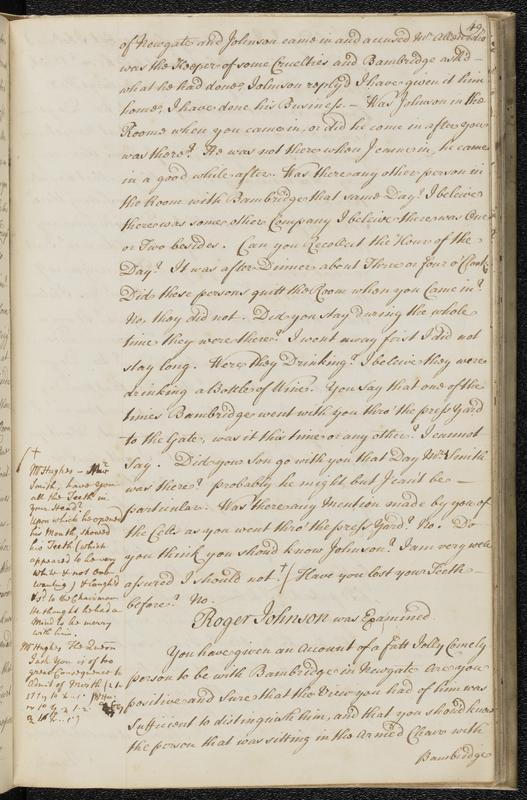 49
of Newgate and Johnson came in and accused Mr
was the Keeper of some Cruelties and Bambridge ask'd
what he had done, Johnson reply'd I have given it him
home, I have done his Business. – Was Johnson in the
Roome when you came in, or did he come in after you
was there? He was not there when I came in, he came
in a good while after. Was there any other person in
the Room with Bambridge that same Day? I beleive
there was some other Company I beleive there was One
or Two besides. Can you Recollect the Hour of the
Day? It was after Dinner about Three or four o'Clock
Did these persons quitt the Room when you Came in?
No, they did not. Did you stay during the whole
time they were there? I went away first I did not
stay long. Were they Drinking? I beleive they were
drinking a Bottle of Wine. You say that one of the
times Bambridge went with you thro' the press Yard
to the Gate, was it this time or any other? I cannot
say. Did your Son go with you that Day Mr Smith
was there? probably he might but I can't be
particular. Was there any Mention made by you of
the Cells as you went thro' the press Yard? No. Do
you think you should know Johnson? I am very well
assured I should not. † Have you lost your Teeth
before? No.
Roger Johnson was Examined.
You have given an Account of a fatt Jolly Comely
person to be with Bambridge in Newgate Are you
positive and Sure that the View you had of him was
Sufficient to distinguish him, and that you should know
the person that was sitting in the Armed Chair with
Bambridge
†
Mr Hughes –
Smith, have you
all the Teeth in
your Head?
Upon which he opened
his Mouth, showed
his Teeth (which
appeared to be very
white & not One
wanting) & laughed
to the Chairman
He thought he had a
Mind to be merry
with him.
Mr Hughes The Queon
I ask You is of too
great Consequence to
Admit of Mirth